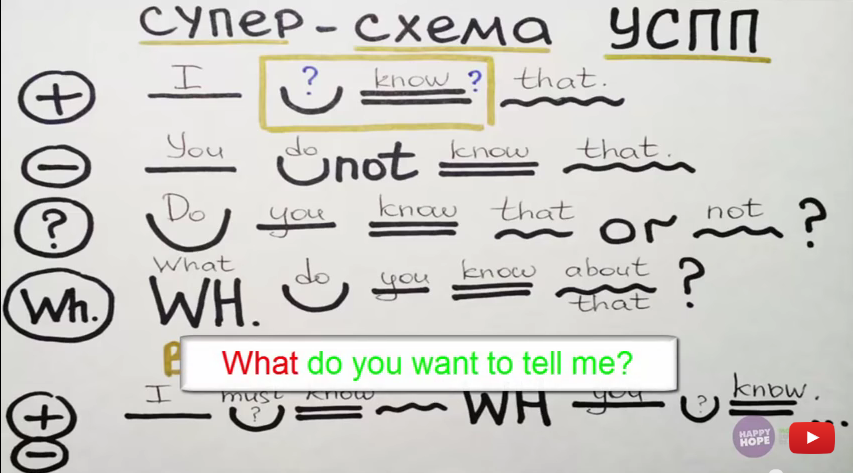 СУПЕР-СХЕМА УСПП
+ I ? know ? that.
− You do not know that.
? Do you know that or not ?
What
Wh. WH. do you know about that ?
What do you want to tell me?
+ I must ? know WH you ? know. ...
−
HAPPY
HOPE